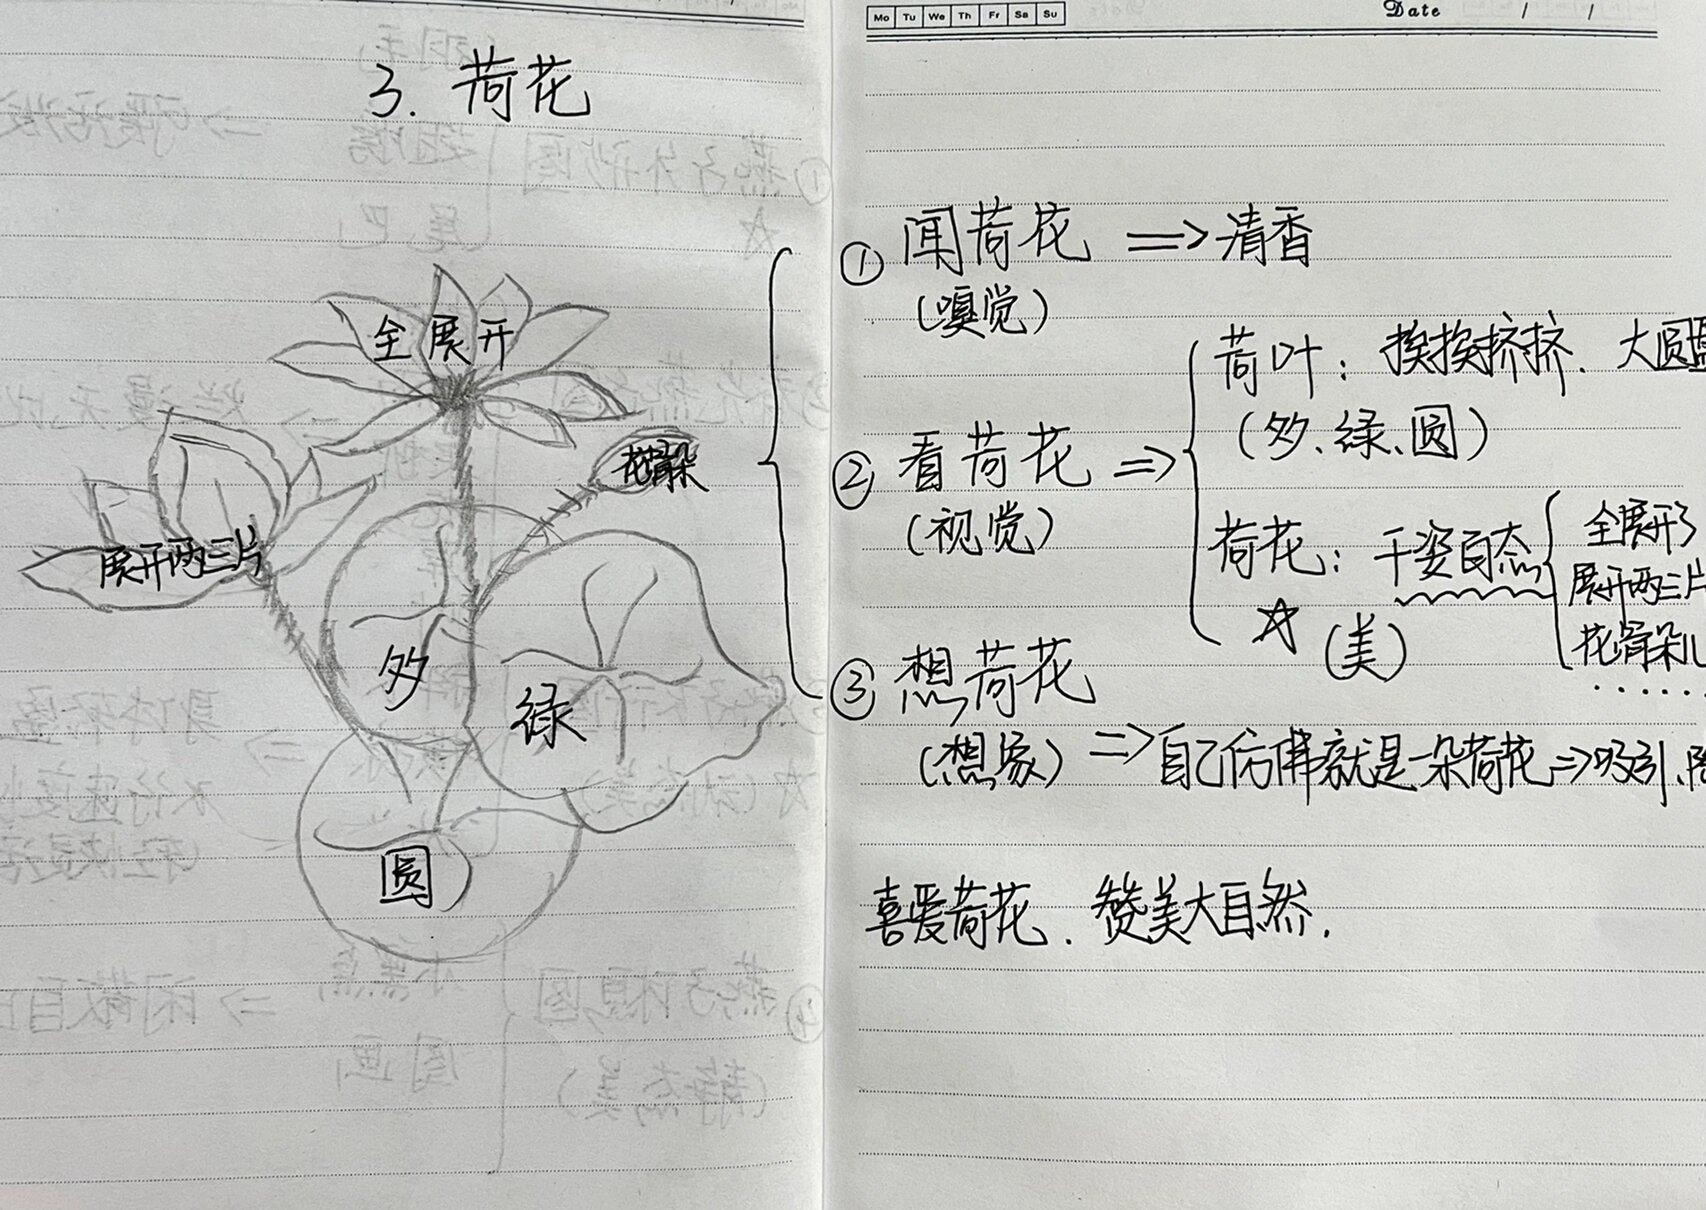 Mo Tu We Th Fr Sa Su
Date / /
3. 荷花
全展开
花骨朵
展开两三片
多
绿
圆
① 闻荷花 ⟹ 清香
(嗅觉)
② 看荷花 ⟹
(视觉)
荷叶: 挨挨挤挤、大圆
(多、绿、圆)
荷花: 千姿百态
☆ (美)
全展开了
展开两三片
花骨朵儿
......
③ 想荷花
(想象) ⟹ 自己仿佛就是一朵荷花 ⟹ 吸引、
喜爱荷花、赞美大自然.